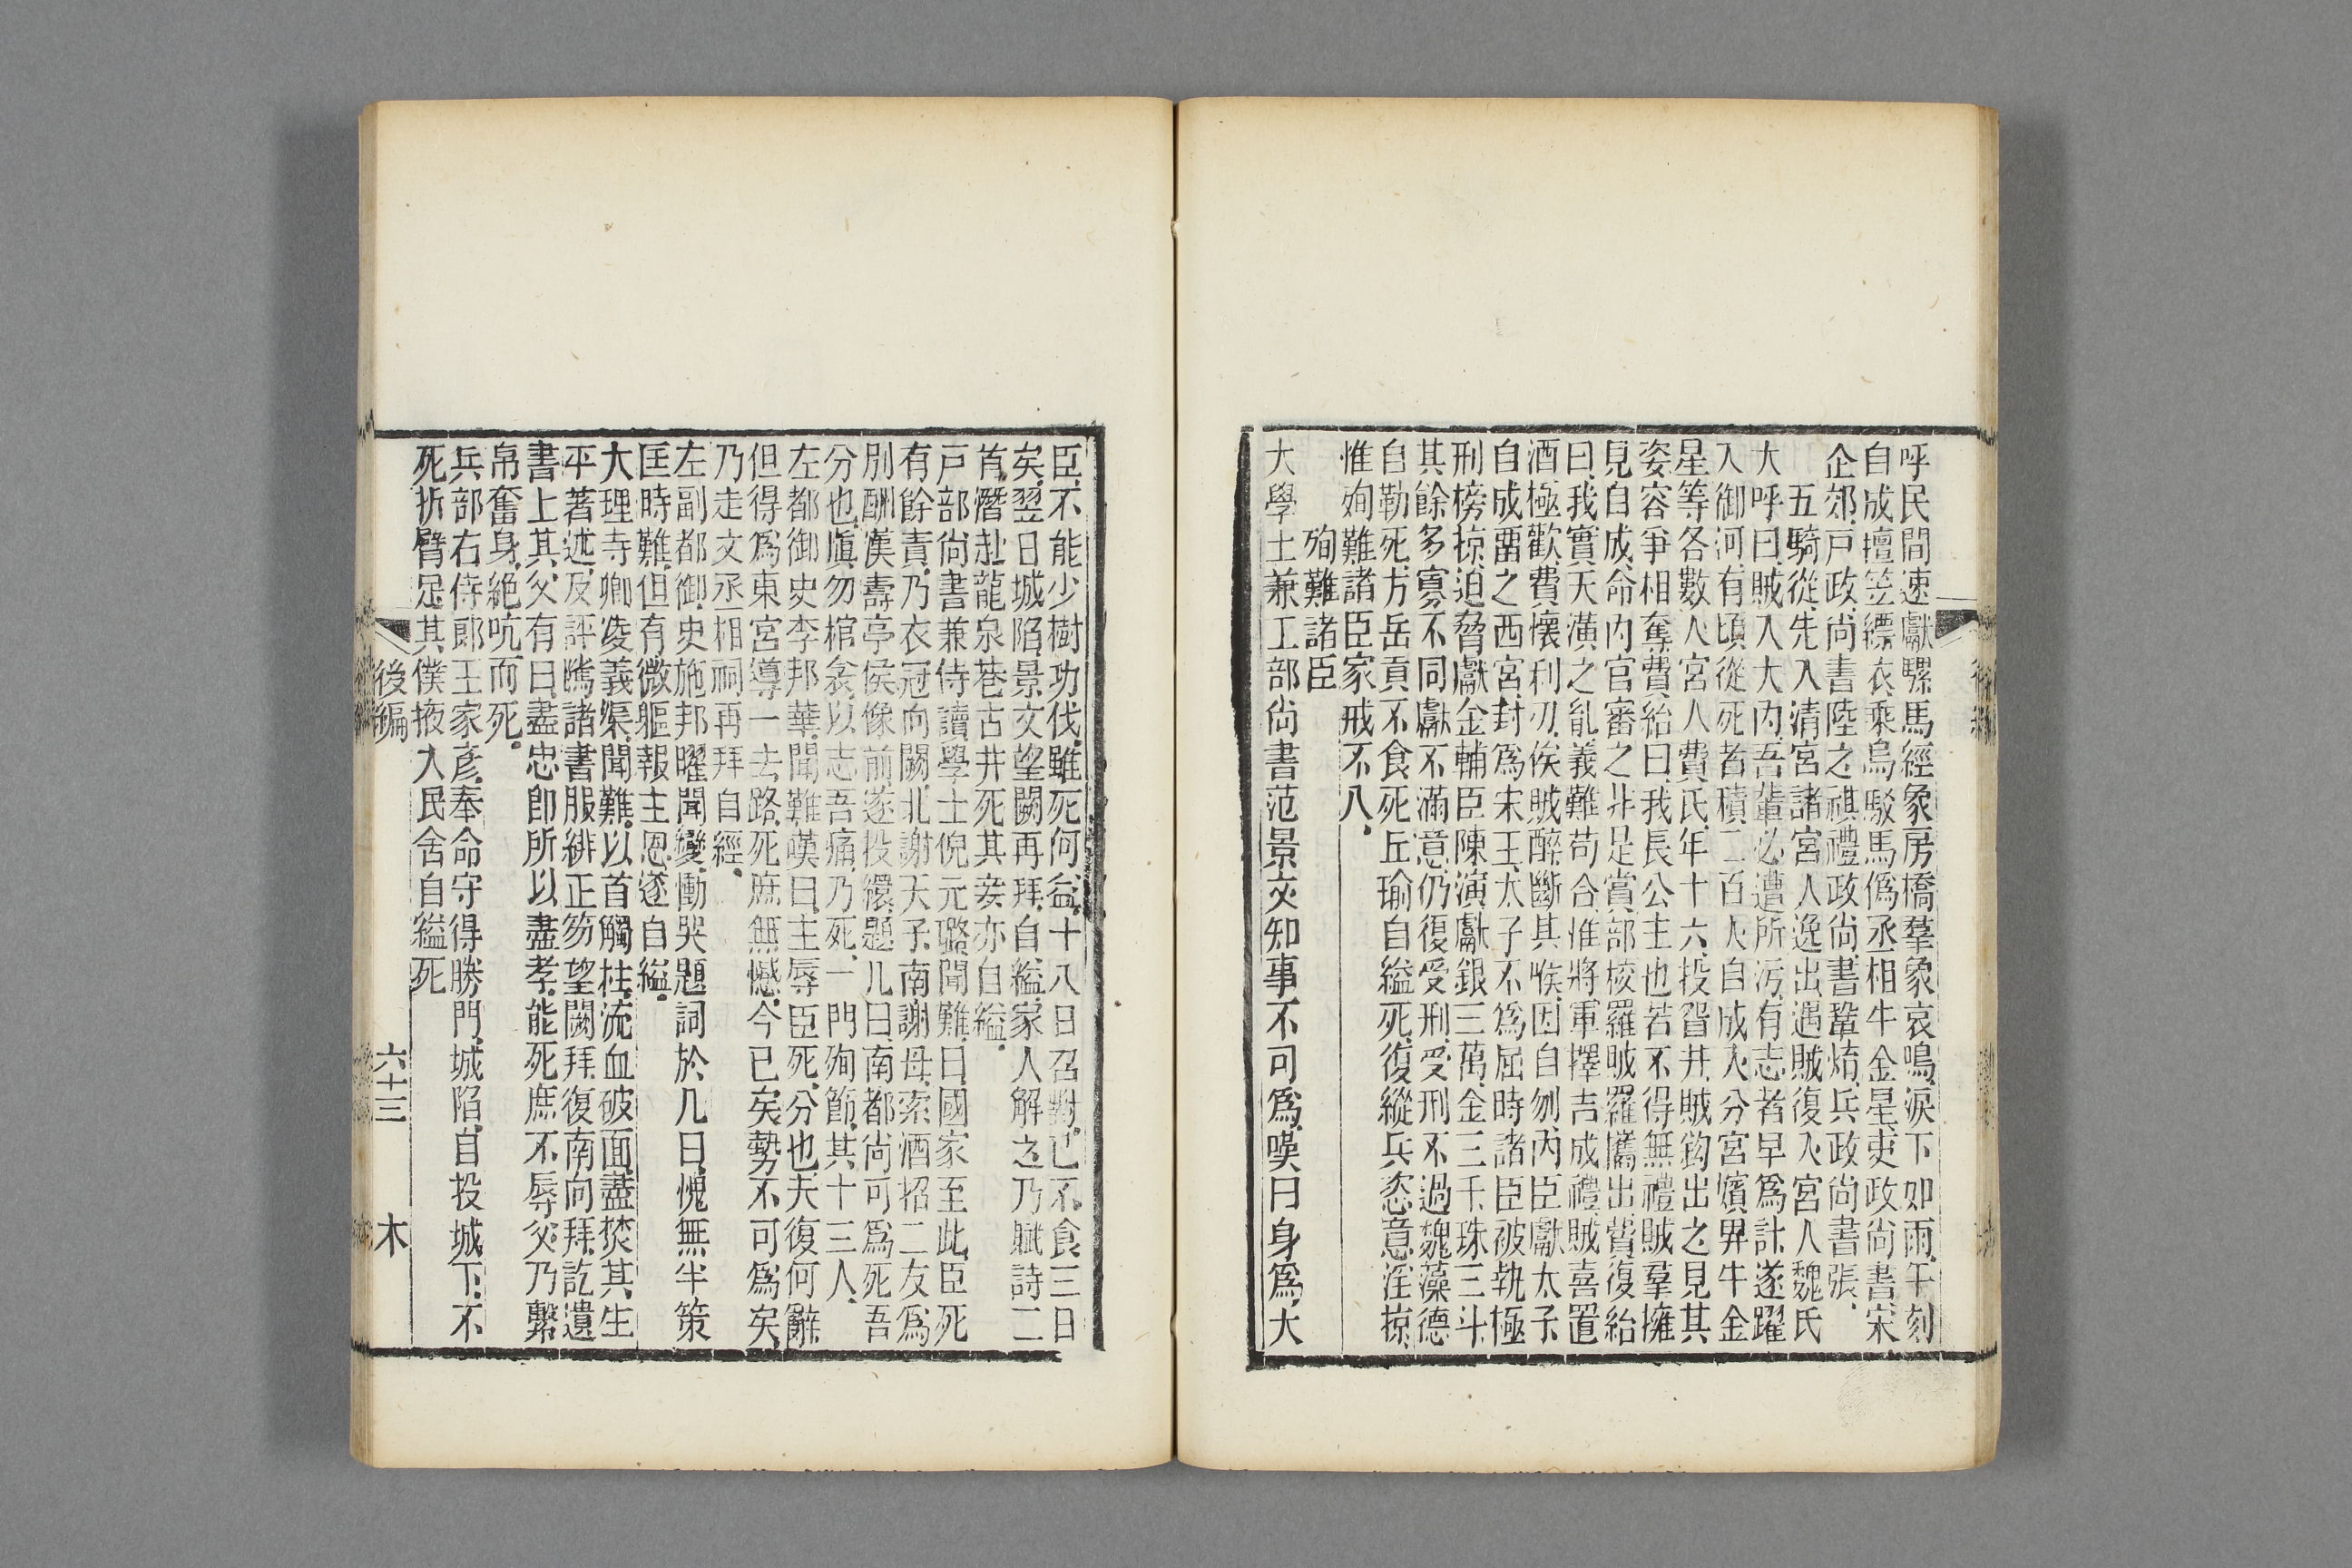 呼民間速獻騾馬經象房橋羣象哀鳴、淚下如雨、午刻
自成氊笠縹衣乘烏駁馬僞丞相牛金星、吏政尚書宋
企郊、戸政尚書陸之祺、禮政尚書鞏焴、兵政尚書張、
五騎從、先入清宮、諸宮人逸出、遇賊復入、宮人魏氏
大呼曰、賊入大內、吾輩必遭所污、有志者早爲計、遂躍
入御河、有頃從死者積二百人、自成入分宮嬪畀牛金
星等各數人、宮人費氏、年十六、投眢井、賊鈎出之、見其
姿容爭相奪、費紿曰、我長公主也、若不得無禮、賊羣擁
見自成、命內官審之非是、賞部校羅賊、羅攜出、費復紿
曰、我實天潢之胤、義難苟合、惟將軍擇吉成禮、賊喜置
酒極歡、費懷利刃、俟賊醉斷其喉、因自刎、內臣獻太子、
自成畱之西宮、封爲宋王、太子不爲屈、時諸臣被執極
刑榜掠、迫脅獻金、輔臣陳演、獻銀三萬、金三千、珠三斗、
其餘多寡不同、獻不滿意、仍復受刑、受刑不過、魏藻德
自勒死、方岳貢不食死、丘瑜自縊死、復縱兵恣意淫掠、
惟殉難諸臣家戒不入、
殉難諸臣
大學士兼工部尚書范景文知事不可爲、嘆曰、身爲大
臣、不能少樹功伐、雖死何益、十八日召對、已不食三日
矣、翌日城陷、景文望闕再拜、自縊、家人解之、乃賦詩二
首、潛赴龍泉巷古井死、其妾亦自縊、
戸部尚書兼侍讀學士倪元璐聞難、曰、國家至此、臣死
有餘責、乃衣冠向闕、北謝天子、南謝母、索酒招二友爲
別、酬漢壽亭侯像前、遂投繯、題几曰、南都尚可爲、死吾
分也、愼勿棺衾、以志吾痛、乃死、一門殉節、其十三人、
左都御史李邦華、聞難嘆曰、主辱臣死、分也、夫復何辭、
但得爲東宮導一去路、死庶無憾、今已矣、勢不可爲矣、
乃走文丞相祠再拜自經、
左副都御史施邦曜聞變、慟哭題詞於几曰、愧無半策
匡時難、但有微軀報主恩、遂自縊、
大理寺卿凌義渠、聞難、以首觸柱、流血破面、盡焚其生
平著述及評騭諸書、服緋正笏望闕拜、復南向拜、訖遺
書上其父、有曰、盡忠卽所以盡孝、能死庶不辱父、乃繫
帛奮身、絶吭而死、
兵部右侍郎王家彥、奉命守得勝門、城陷、自投城下、不
死、折臂足、其僕掖入民舍自縊死
後編
六十三
木